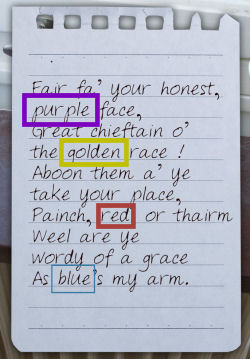 Fair fa' your honest,
purple face,
Great chieftain o'
the golden race !
Aboon them a' ye
take your place,
Painch, red, or thairm
Weel are ye
wordy of a grace
As blue's my arm.